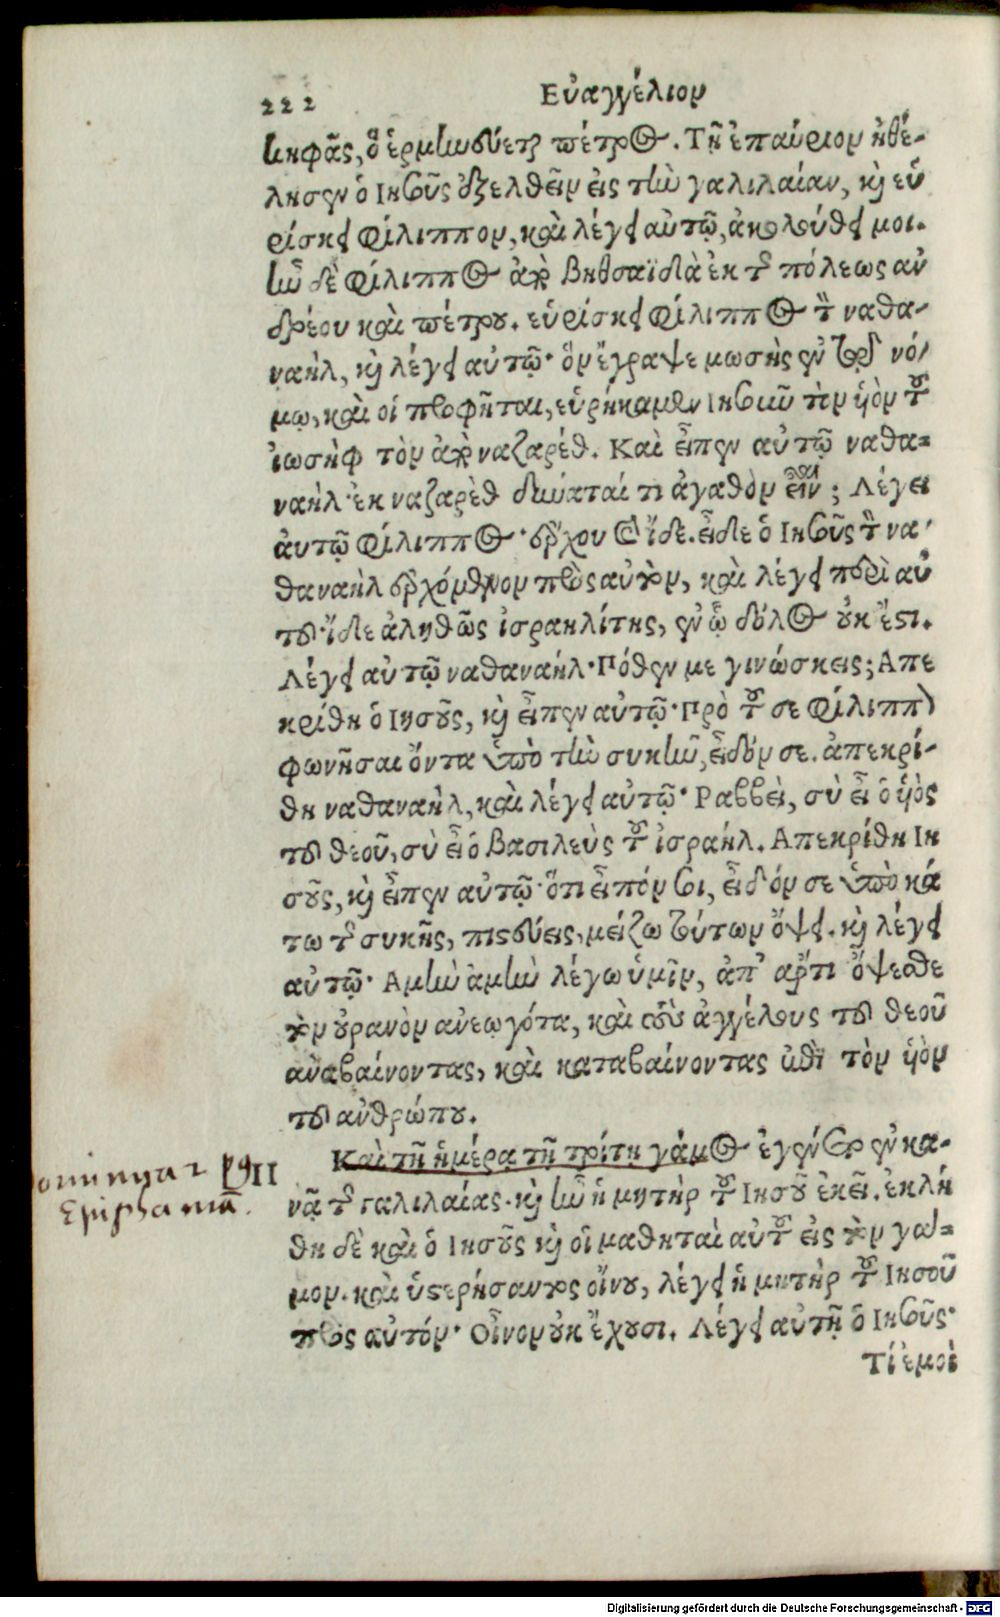 222 Εὐαγγέλιον
κηφᾶς, ὃ ἑρμηνεύεται πέτρος. Τῇ ἐπαύριον ἠθέ-
λησεν ὁ Ἰησοῦς ἐξελθεῖν εἰς τὴν γαλιλαίαν, καὶ εὑ
ρίσκει Φίλιππον, καὶ λέγει αὐτῷ, ἀκολούθει μοι.
ἦν δὲ Φίλιππος ἀπὸ βηθσαϊδὰ ἐκ τῆς πόλεως αν
δρέου καὶ πέτρου. εὑρίσκει Φίλιππος τὸν ναθα-
ναήλ, καὶ λέγει αὐτῷ· ὃν ἔγραψε μωσὴς ἐν τῷ νό-
μῳ, καὶ οἱ προφῆται, εὑρήκαμεν Ἰησοῦν τὸν ὑὸν τοῦ
ἰωσὴφ τὸν ἀπὸ ναζαρέθ. Καὶ εἶπεν αὐτῷ ναθα=
ναήλ· ἐκ ναζαρὲθ δύναταί τι ἀγαθὸν εἶναι; Λέγει
ἀυτῷ Φίλιππος· ἔρχου καὶ ἴδε. εἶδε ὁ Ἰησοῦς τὸν να-
θαναὴλ ἐρχόμενον πρὸς αὐτὸν, καὶ λέγει περὶ αὐ
τοῦ· ἴδε ἀληθῶς ἰσραηλίτης, ἐν ᾧ δόλος οὐκ ἔστι.
Λέγει αὐτῷ ναθαναήλ· Πόθεν με γινώσκεις; Απε
κρίθη ὁ Ἰησοῦς, καὶ εἶπεν αὐτῷ· Πρὸ τοῦ σε Φίλιππον
φωνῆσαι ὄντα ὑπὸ τὴν συκῆν, εἶδόν σε. ἀπεκρί-
θη ναθαναὴλ, καὶ λέγει αὐτῷ· Ραββεὶ, σὺ εἶ ὁ ὑὸς
τοῦ θεοῦ, σὺ εἶ ὁ βασιλεὺς τοῦ ἰσραήλ. Απεκρίθη Ἰη
σοῦς, καὶ εἶπεν αὐτῷ· ὅτι εἶπόν σοι, εἶδόν σε ὑπὸ κά
τω τῆς συκῆς, πιστεύεις, μείζω τούτων ὄψει. καὶ λέγει
αὐτῷ· Αμὴν ἀμὴν λέγω ὑμῖν, ἀπ' ἄρτι ὄψεσθε
τὸν οὐρανὸν ανεῳγότα, καὶ τοὺς ἀγγέλους τοῦ θεοῦ
ἀναβαίνοντας, καὶ καταβαίνοντας ἐπὶ τὸν ὑὸν
τοῦ ανθρώπου.
II Καὶ τῇ ἡμέρα τῇ τρίτῃ γάμος ἐγένετο ἐν κα-
νᾷ τῆς γαλιλαίας. καὶ ἦν ἡ μητὴρ τοῦ Ἰησοῦ ἐκεῖ. ἐκλή
θη δὲ καὶ ὁ Ἰησοῦς καὶ οἱ μαθηταὶ αὐτοῦ εἰς τὸν γά=
μον. καὶ ὑστερήσαντος οἴνου, λέγει ἡ μητὴρ τοῦ Ἰησοῦ
πρὸς αὐτόν· Οἶνον οὐκ ἔχουσι. Λέγει αὐτῇ ὁ Ἰησοῦς·
Τί ἐμοὶ
Epiphaniā.
Digitalisierung gefördert durch die Deutsche Forschungsgemeinschaft - DFG